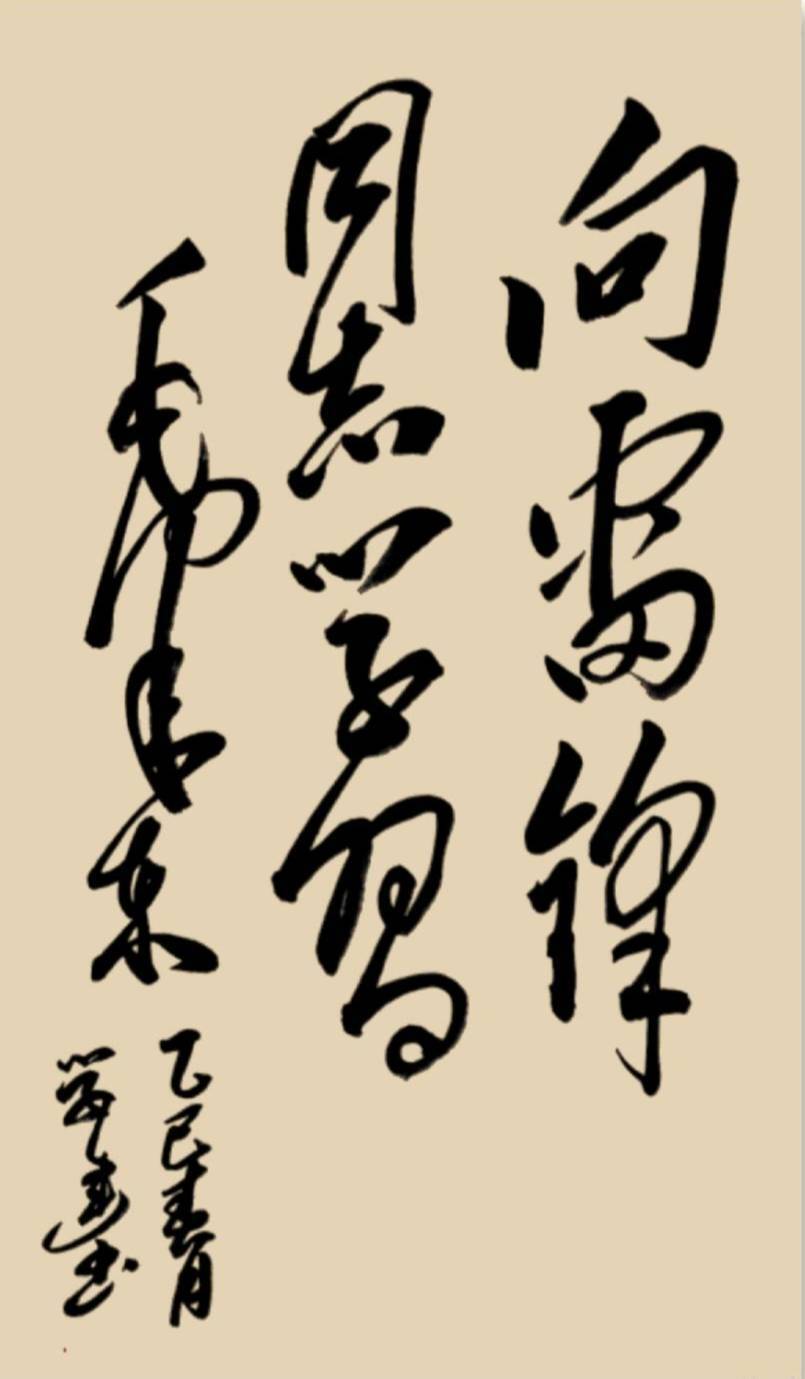 向雷锋
同志学习
毛泽东
乙巳春月
书